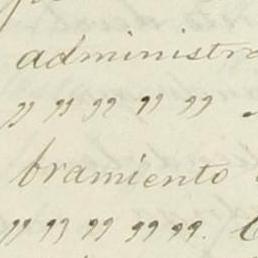 administra
" " " " "
bramiento
" " " " "